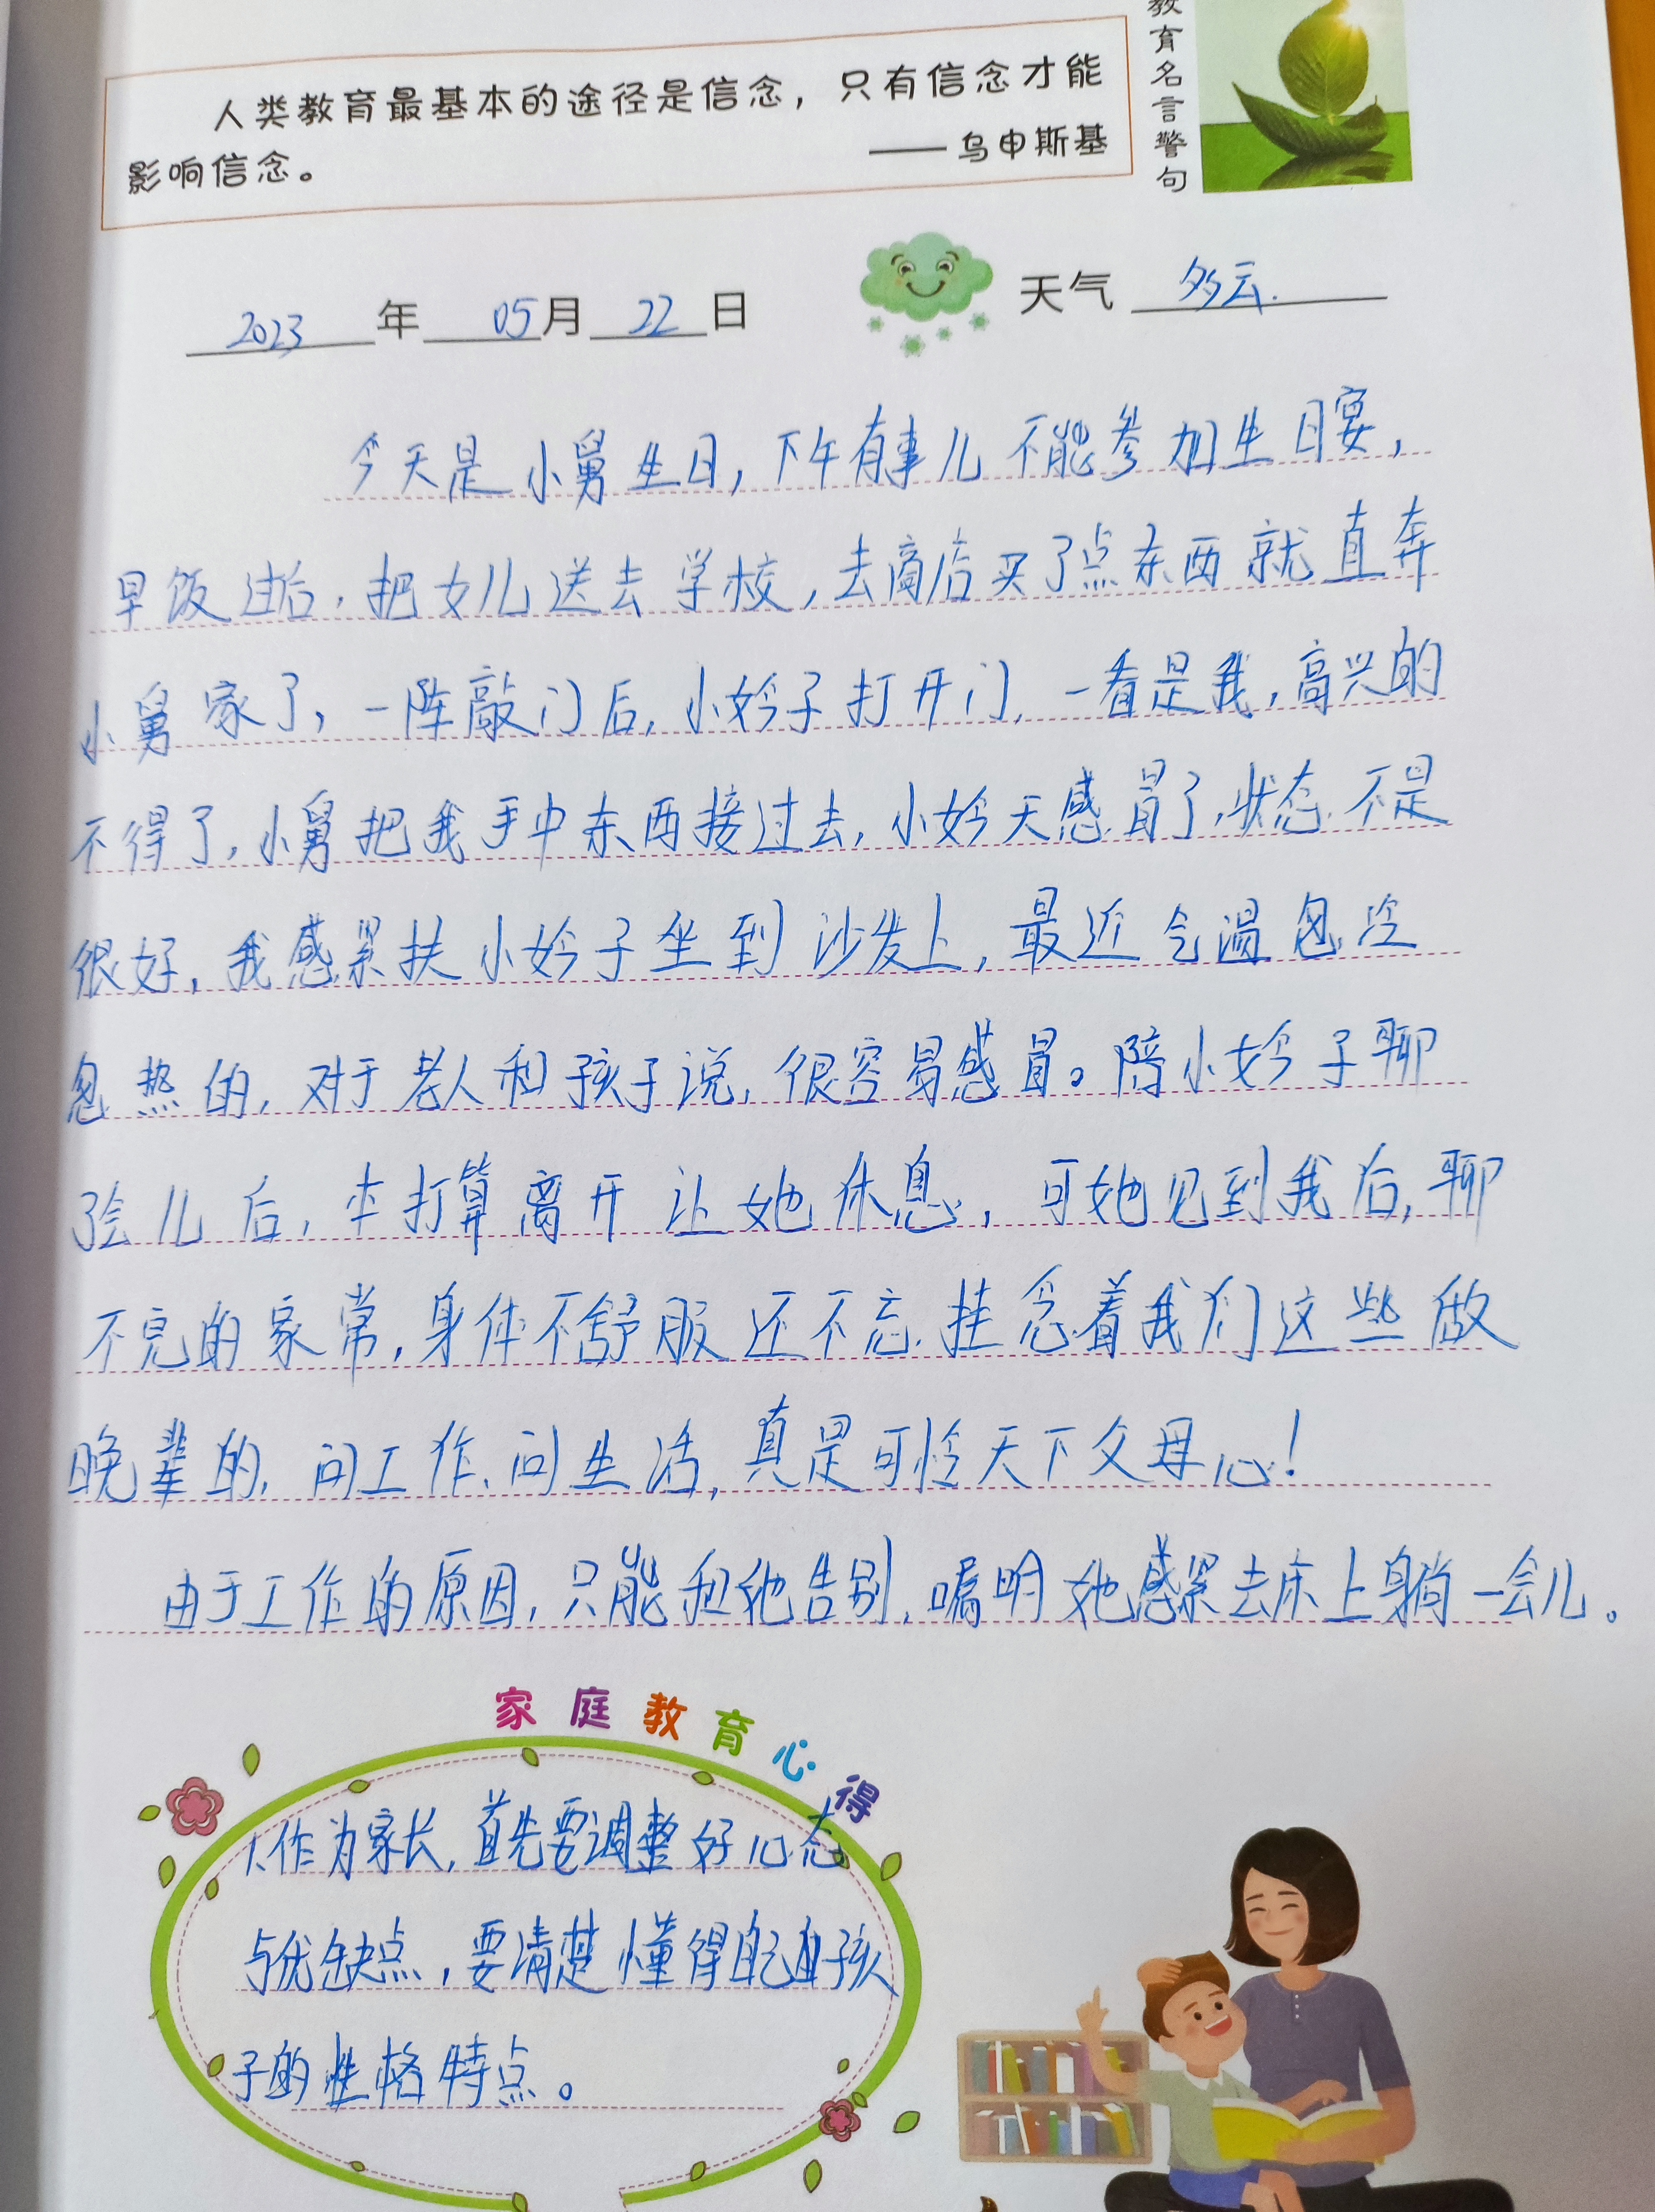 教育名言警句
人类教育最基本的途径是信念，只有信念才能
影响信念。
——乌申斯基
2023年05月22日 天气 多云.
今天是小舅生日，下午有事儿不能参加生日宴，
早饭过后，把女儿送去学校，去商店买了点东西就直奔
小舅家了，一阵敲门后，小妗子打开门，一看是我，高兴的
不得了，小舅把我手中东西接过去，小妗天感冒了，状态不是
很好，我感紧扶小妗子坐到沙发上，最近气温忽冷
忽热的，对于老人和孩子说，很容易感冒。陪小妗子聊
了会儿后，本打算离开让她休息，可她见到我后，聊
不完的家常，身体不舒服还不忘挂念着我们这些做
晚辈的，问工作、问生活，真是可怜天下父母心！
由于工作的原因，只能和她告别，嘱咐她感紧去床上躺一会儿。
家庭教育心得
1.作为家长，首先要调整好心态
与优缺点，要清楚懂得自己孩
子的性格特点。